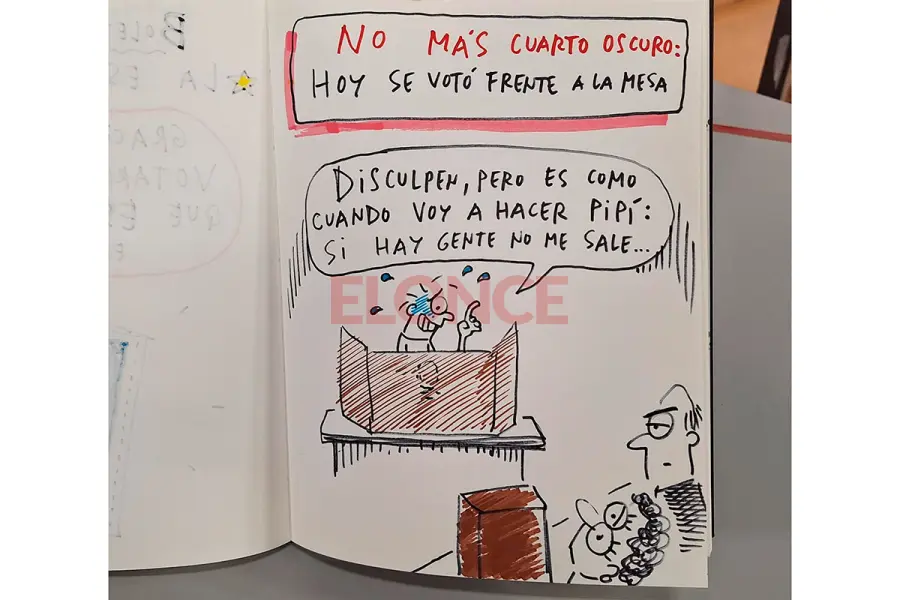 NO MÁS CUARTO OSCURO:
HOY SE VOTÓ FRENTE A LA MESA
DISCULPEN, PERO ES COMO
CUANDO VOY A HACER PIPÍ:
SI HAY GENTE NO ME SALE...
ELONCE